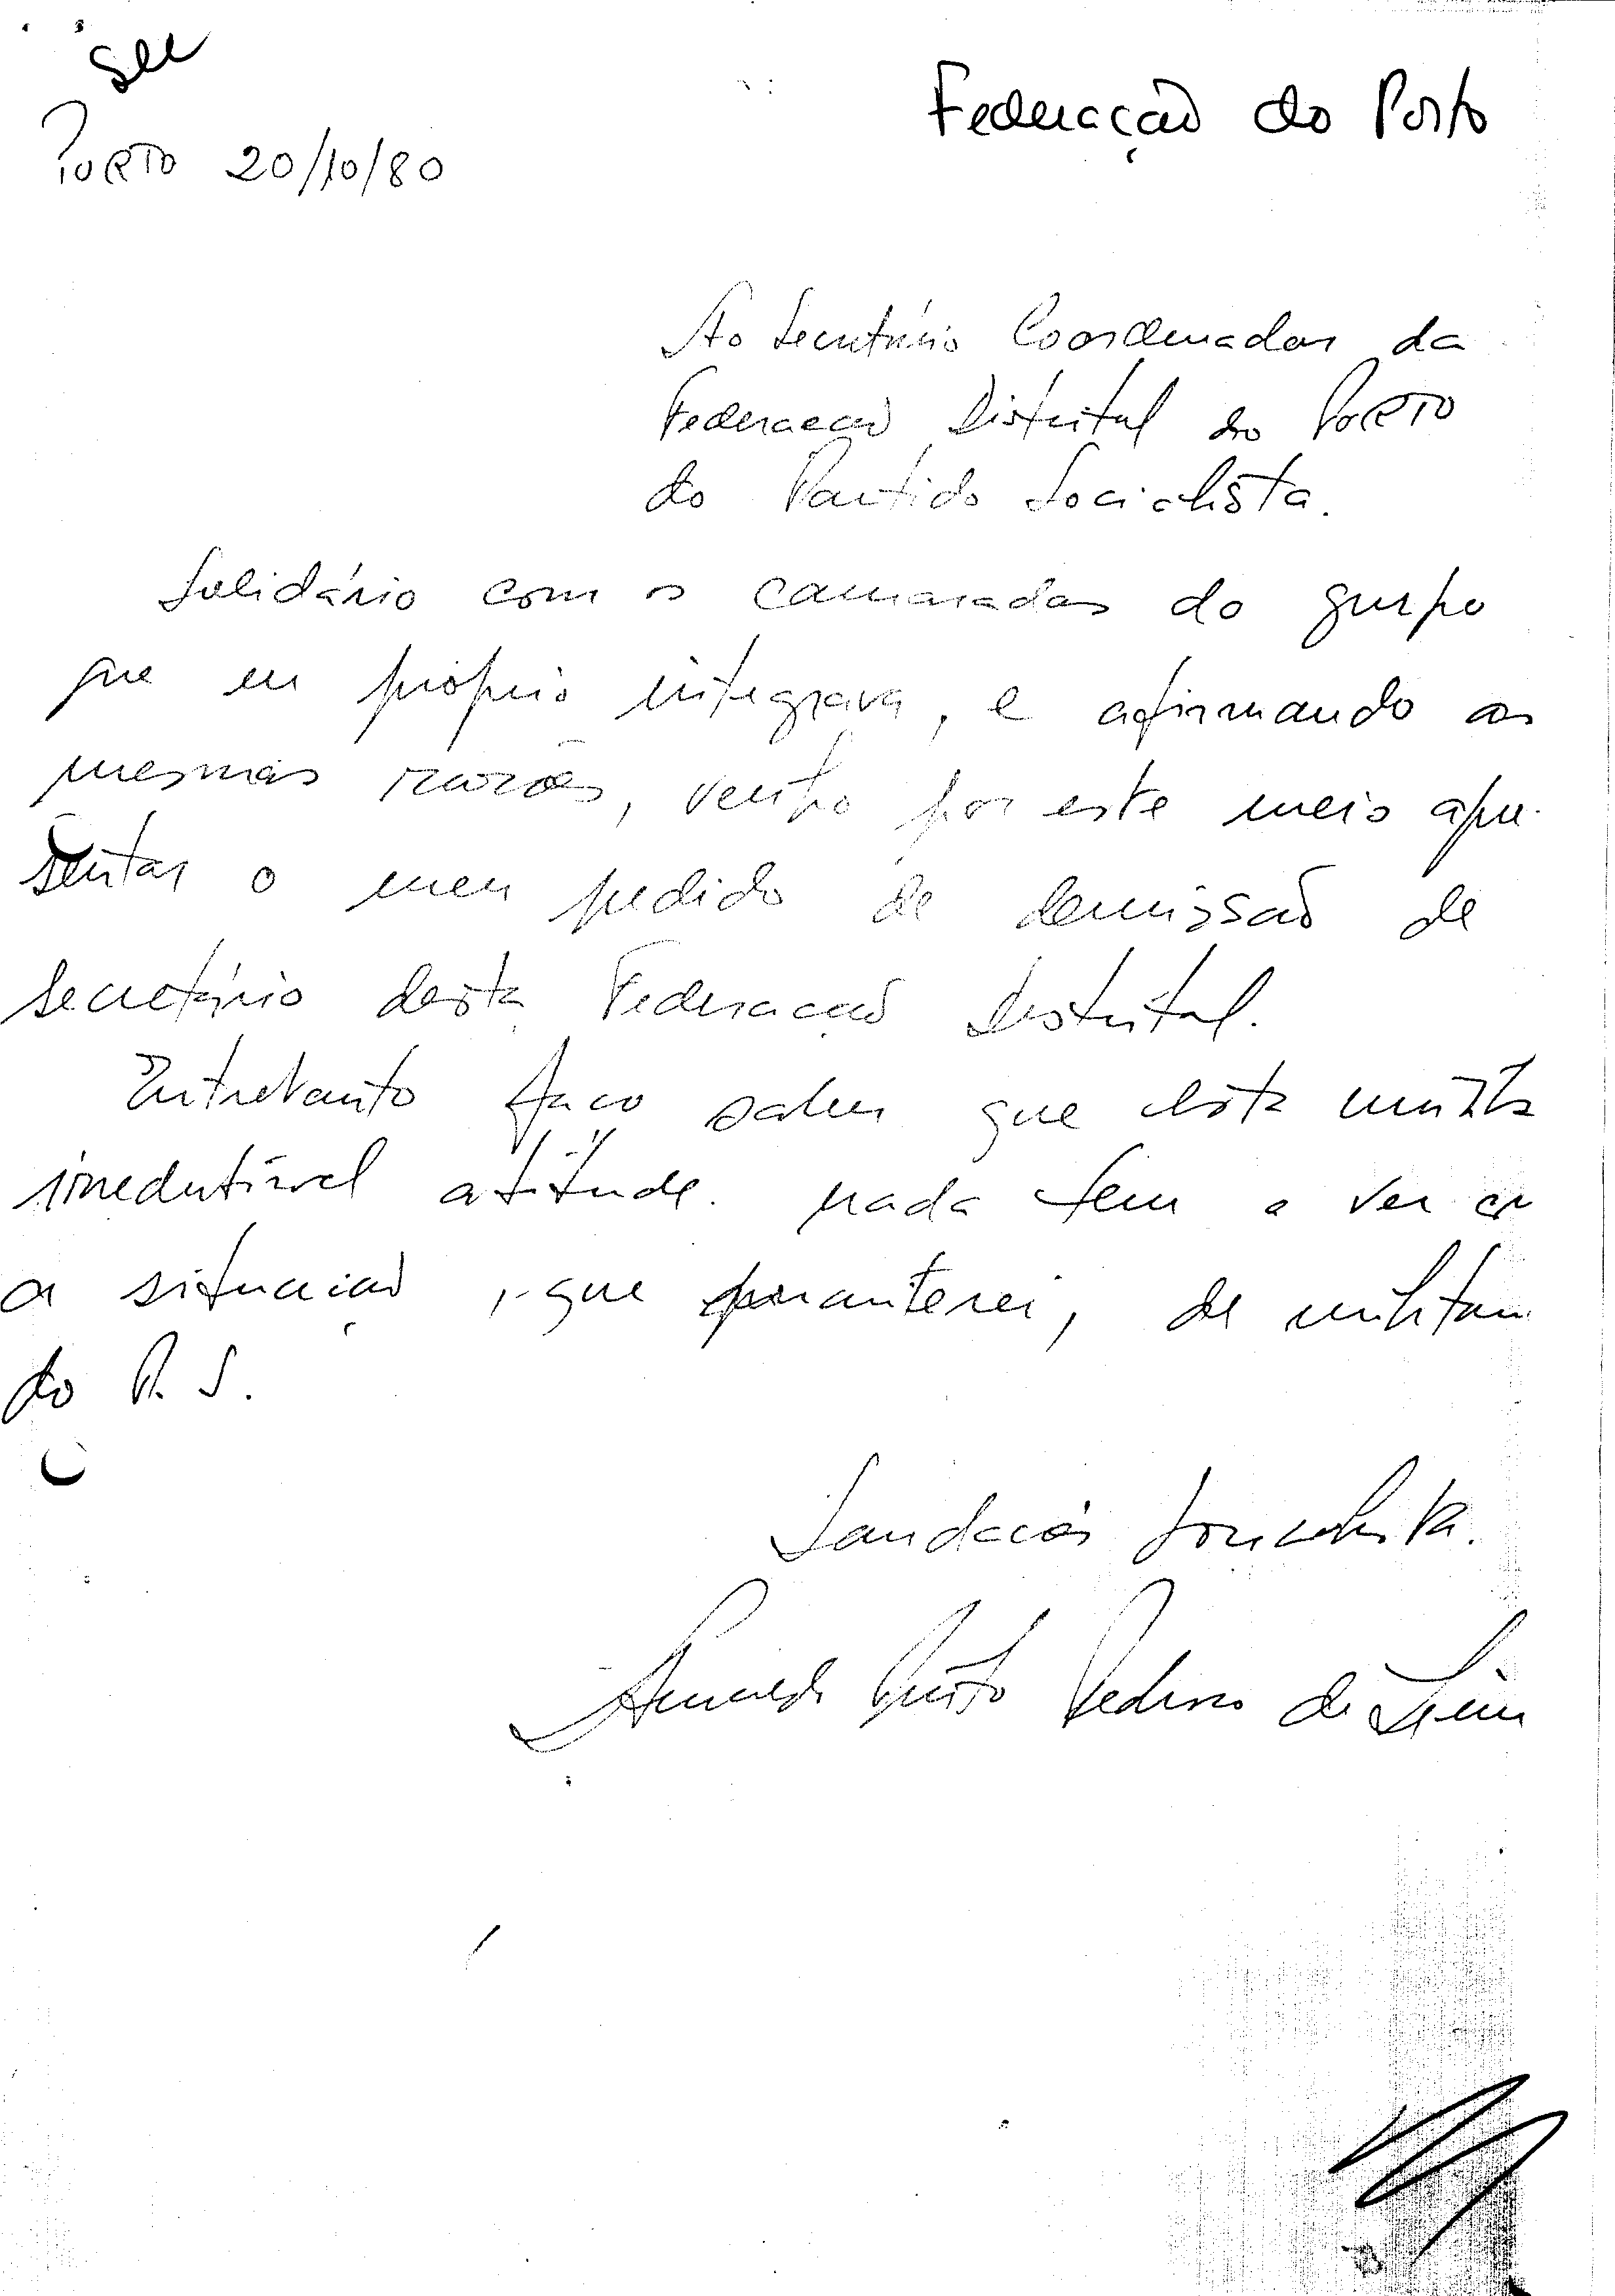 Federação do Porto
Porto 20/10/80
Ao Secretário Coordenador da
Federação Distrital do Porto
do Partido Socialista.
Solidário com os camaradas do grupo
que eu próprio integrava, e afirmando as
mesmas razões, venho por este meio apre-
sentar o meu pedido de demissão de
secretário desta Federação Distrital.
Entretanto faço saber que esta minha
irredutível atitude nada tem a ver
a situação, que manterei, de militan
do P. S.
Saudações Socialista.
Pedroso de Lima